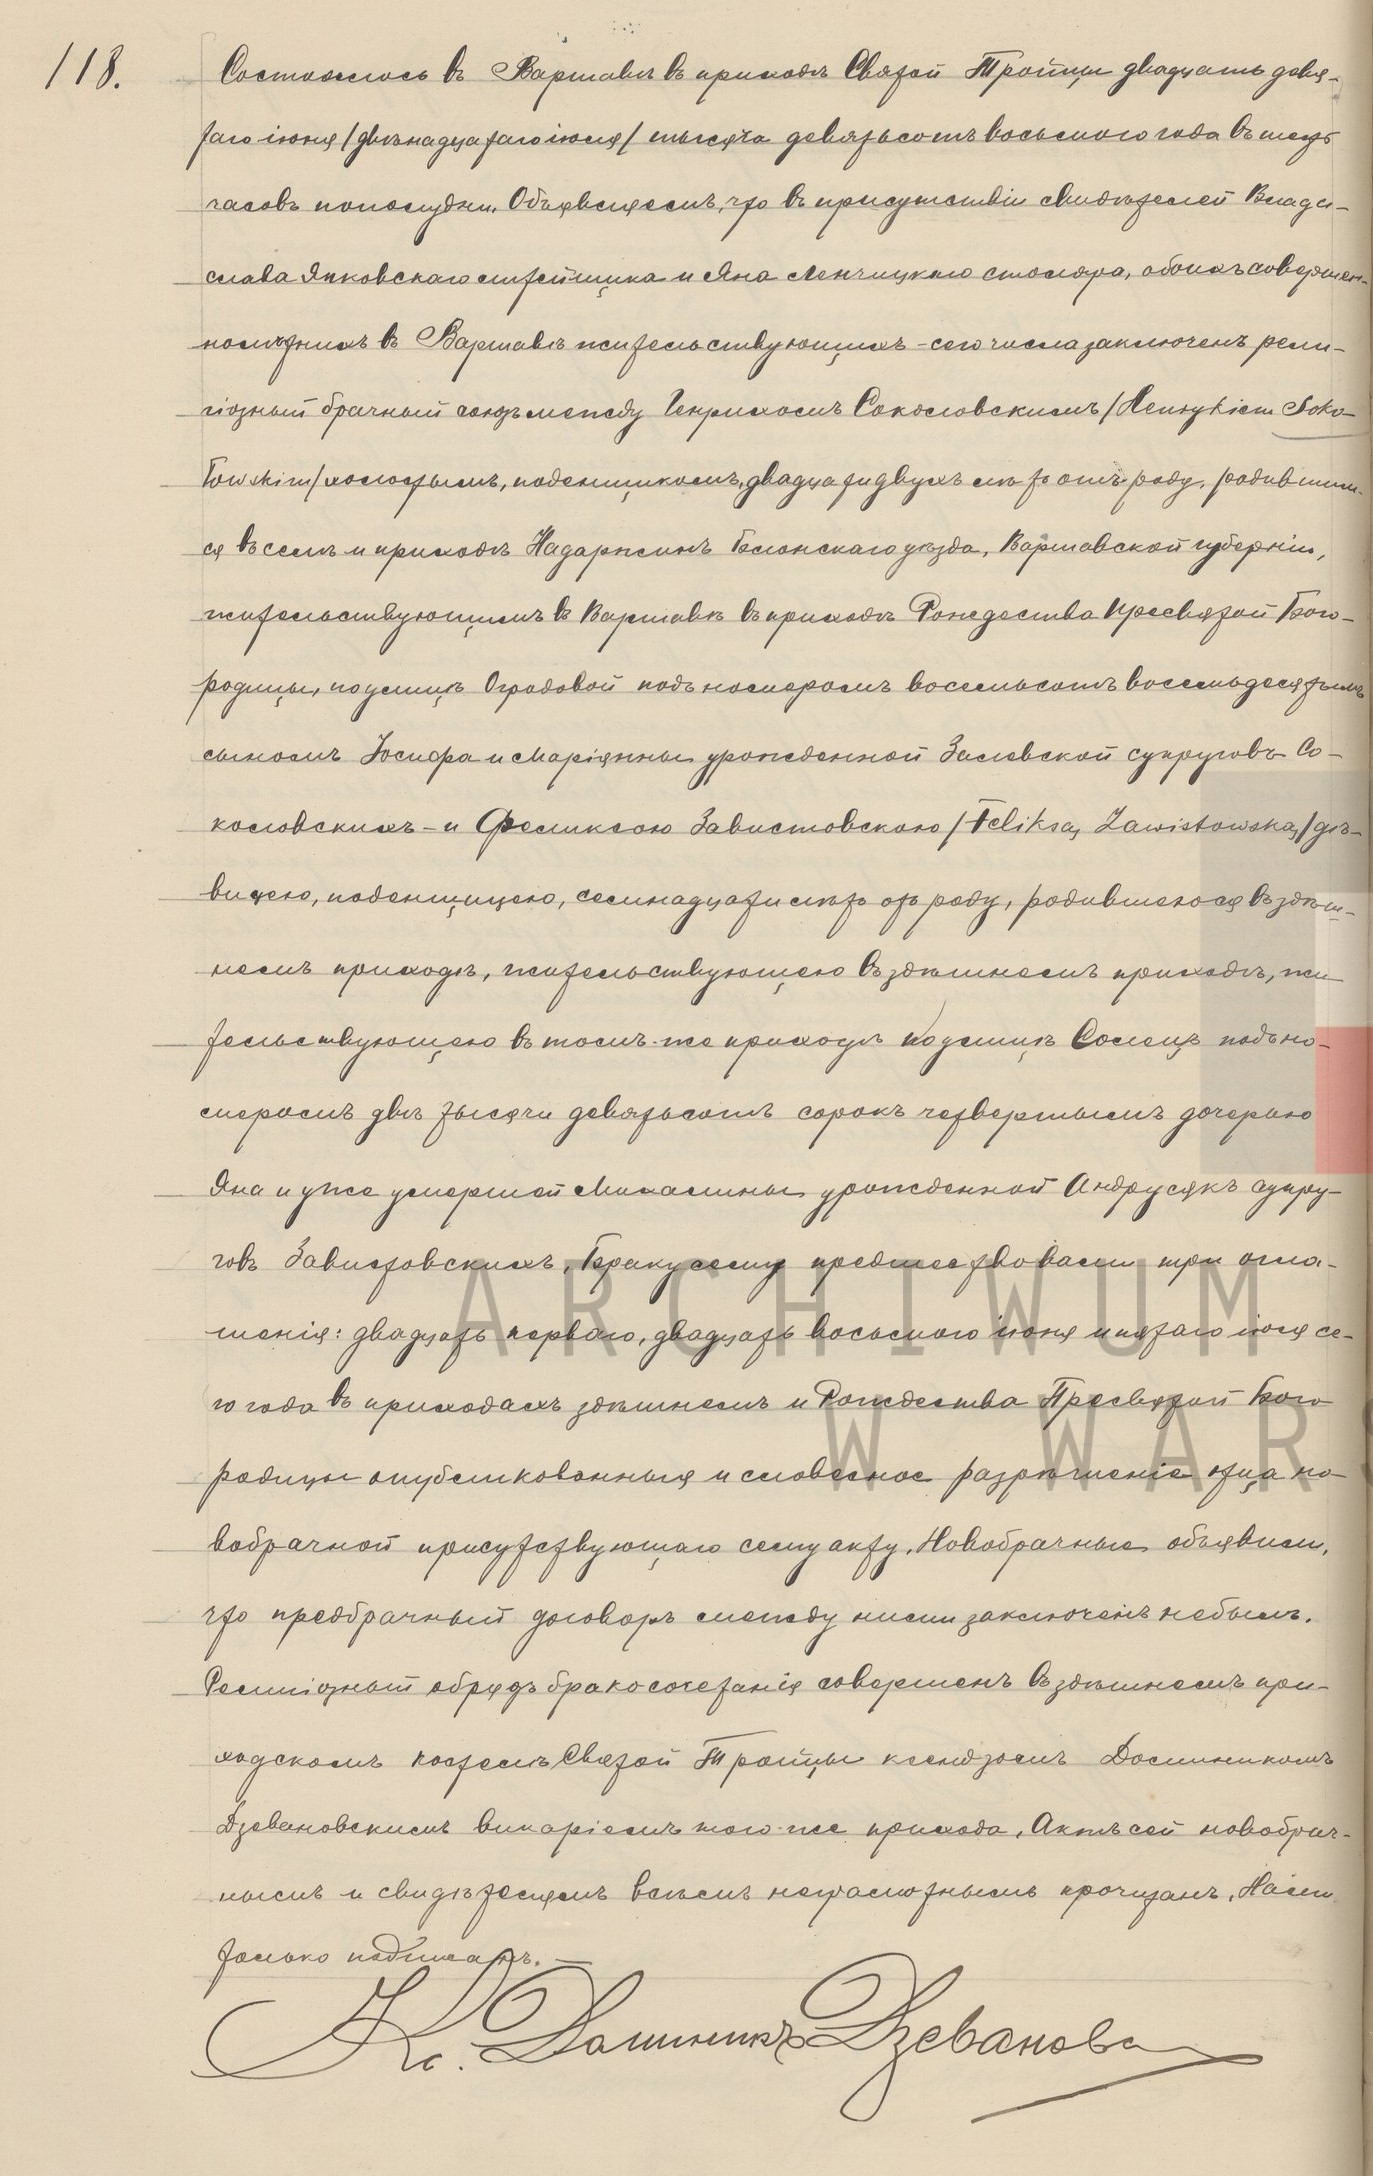 118.
Состоялось въ Варшавѣ въ приходѣ Святой Троицы двадцать девя-
таго іюня /двѣнадцатаго іюля/ тысяча девятьсотъ восьмого года въ шесть
часовъ пополудни. Объявляемъ, что въ присутствіи свидѣтелей Влади-
слава Янковскаго литейщика и Яна Ленчицкаго столяра, обоихъ совершен-
нолѣтнихъ въ Варшавѣ жительствующихъ - сего числа заключенъ рели-
гіозный брачный союзъ между Генрихомъ Соколовскимъ /Henrykiem Soko-
łowskim/ холостымъ, поденщикомъ, двадцати двухъ лѣтъ отъ роду, родившим-
ся въ селѣ и приходѣ Надаржинъ Блонскаго уѣзда, Варшавской губерніи,
жительствующимъ въ Варшавѣ въ приходѣ Рождества Пресвятой Бого-
родицы, по улицѣ Огродовой подъ номеромъ восемьсотъ восемьдесятымъ
сыномъ Іосифа и Маріанны урожденной Залевской супруговъ Со-
коловскихъ - и Феликсою Завистовскою /Feliksą Zawistowską/ дѣ-
вицею, поденщицею, семнадцати лѣтъ отъ роду, родившеюся въ здѣш-
немъ приходѣ, жительствующею въ здѣшнемъ приходѣ, жи
тельствующею въ томъ-же приходѣ по улицѣ Солецъ подъ но-
меромъ двѣ тысячи девятьсотъ сорокъ четвертымъ дочерью
Яна и уже умершей Михалины урожденной Андрусякъ супру-
говъ Завистовскихъ. Браку сему предшествовали три огла-
шенія: двадцать перваго, двадцать восьмого іюня и пятаго іюля се-
го года въ приходахъ здѣшнемъ и Рождества Пресвятой Бого
родицы опубликованныя и словесное разрѣшеніе отца но-
вобрачной присутствующаго сему акту. Новобрачные объявили,
что предбрачный договоръ между ними заключенъ небылъ.
Религіозный обрядъ бракосочетанія совершенъ въ здѣшнемъ при-
ходскомъ костелѣ Святой Троицы ксендзомъ Доминикомъ
Дзевановскимъ викаріемъ того-же прихода. Актъ сей новобрач-
нымъ и свидѣтелямъ всѣмъ неграмотнымъ прочитанъ, Нами
только подписанъ. —
Кс. Доминикъ Дзевановс
ARCHIWUM
W WAR